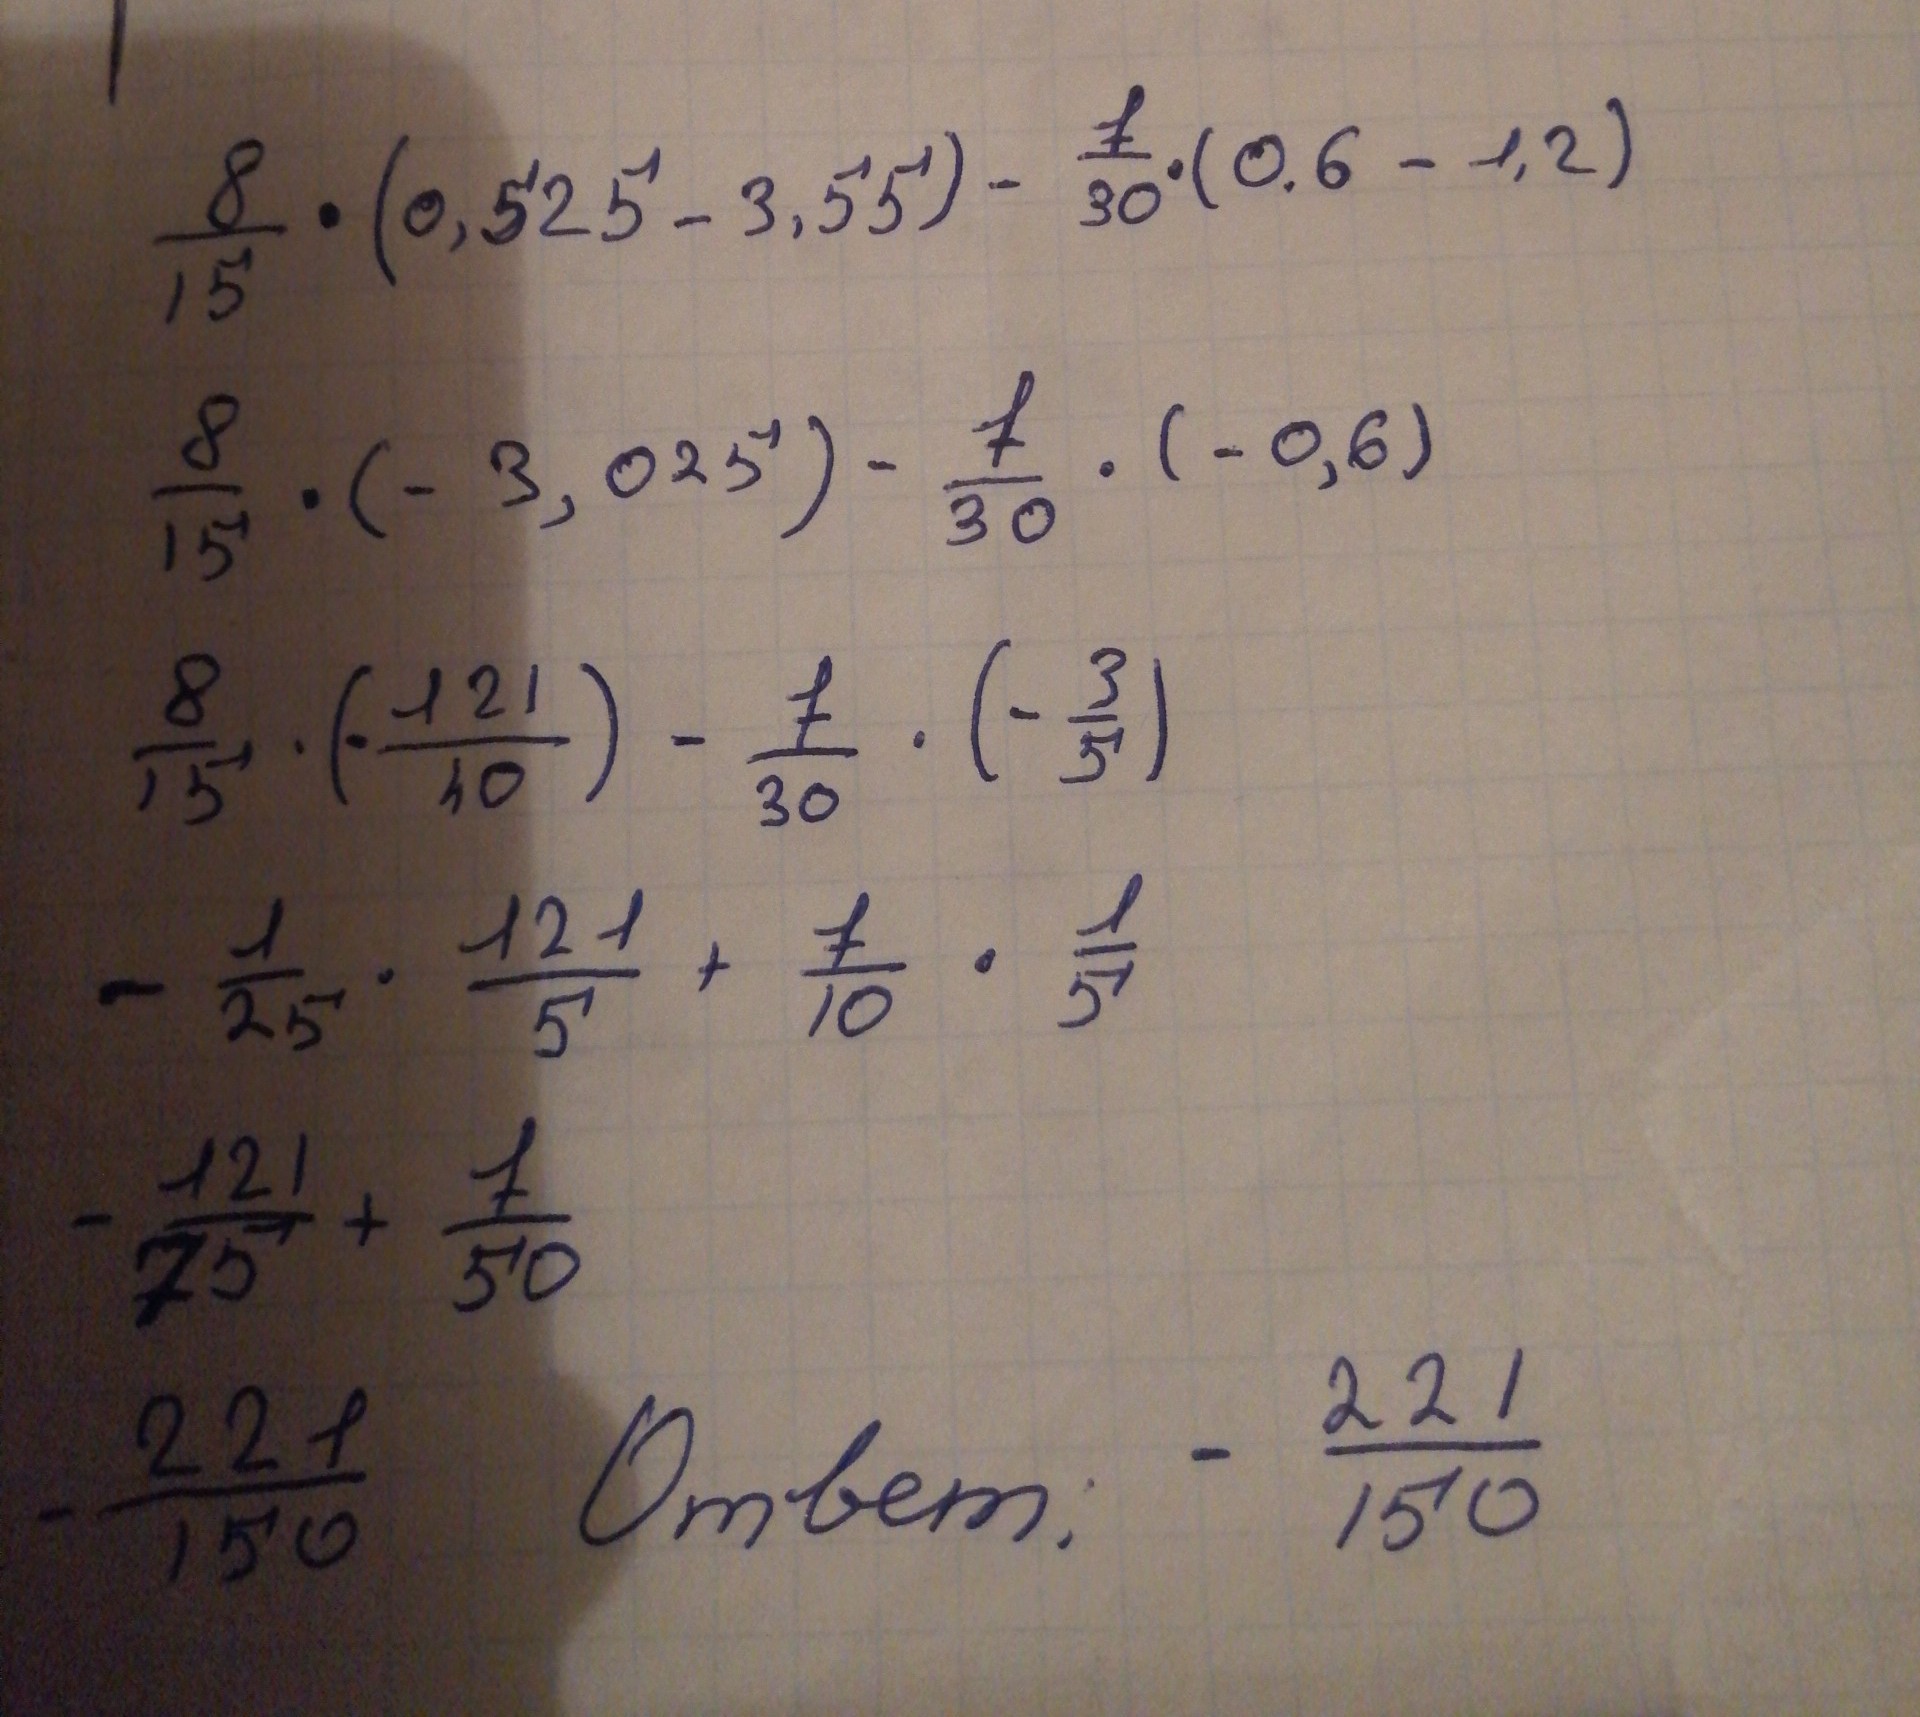 8/15 · (0,525 - 3,55) - 7/30 · (0.6 - 1,2)
8/15 · (- 3,025) - 7/30 · (- 0,6)
8/15 · (- 121/40) - 7/30 · (- 3/5)
- 1/25 · 121/5 + 7/10 · 1/5
- 121/75 + 7/50
- 221/150 Ответ: - 221/150